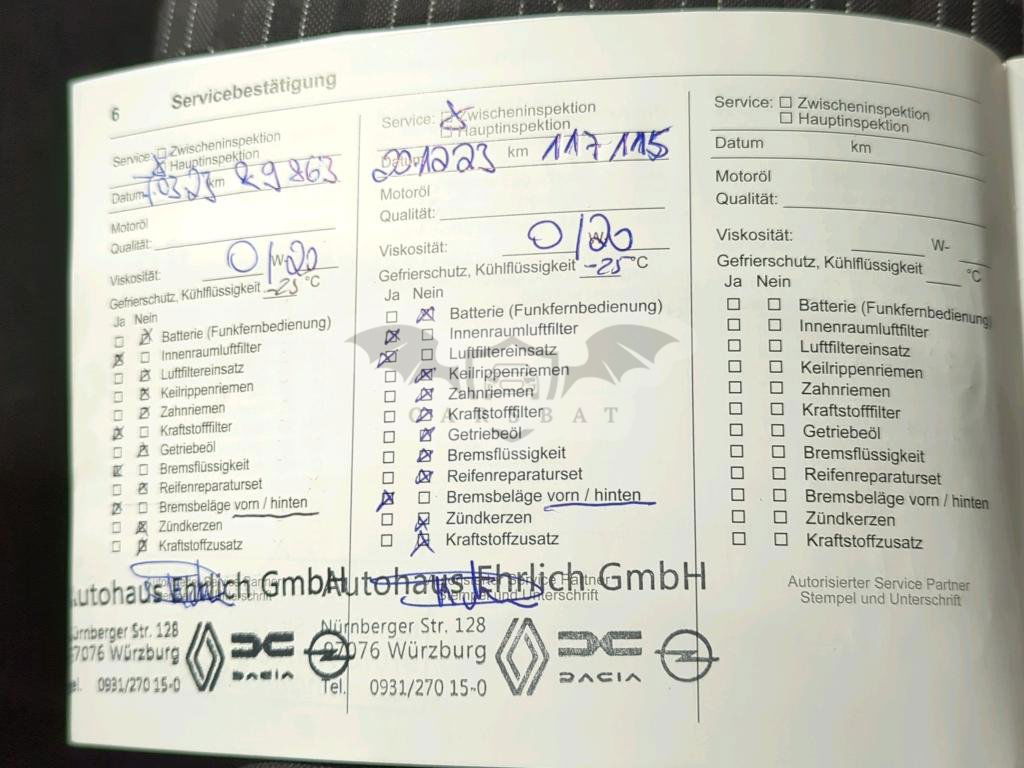 6
Servicebestätigung
Service: Zwischeninspektion
Hauptinspektion
Datum .03.23 km 89 863
Motoröl
Qualität:
Viskosität: 0/W-20
Gefrierschutz, Kühlflüssigkeit -25 °C
Ja Nein
Batterie (Funkfernbedienung)
Innenraumluftfilter
Luftfiltereinsatz
Keilrippenriemen
Zahnriemen
Kraftstofffilter
Getriebeöl
Bremsflüssigkeit
Reifenreparaturset
Bremsbeläge vorn / hinten
Zündkerzen
Kraftstoffzusatz
Autohaus Ehrlich GmbH
Nürnberger Str. 128
97076 Würzburg
Tel. 0931/270 15-0
DACIA
Service: Zwischeninspektion
Hauptinspektion
Datum 201223 km 117 115
Motoröl
Qualität:
Viskosität: 0/W20
Gefrierschutz, Kühlflüssigkeit -25 °C
Ja Nein
Batterie (Funkfernbedienung)
Innenraumluftfilter
Luftfiltereinsatz
Keilrippenriemen
Zahnriemen
Kraftstofffilter
Getriebeöl
Bremsflüssigkeit
Reifenreparaturset
Bremsbeläge vorn / hinten
Zündkerzen
Kraftstoffzusatz
Autohaus Ehrlich GmbH
Service Partner
Stempel und Unterschrift
Nürnberger Str. 128
97076 Würzburg
Tel. 0931/270 15-0
DACIA
Service: Zwischeninspektion
Hauptinspektion
Datum km
Motoröl
Qualität:
Viskosität: W-
Gefrierschutz, Kühlflüssigkeit °C
Ja Nein
Batterie (Funkfernbedienung)
Innenraumluftfilter
Luftfiltereinsatz
Keilrippenriemen
Zahnriemen
Kraftstofffilter
Getriebeöl
Bremsflüssigkeit
Reifenreparaturset
Bremsbeläge vorn / hinten
Zündkerzen
Kraftstoffzusatz
Autorisierter Service Partner
Stempel und Unterschrift
CARSBAT